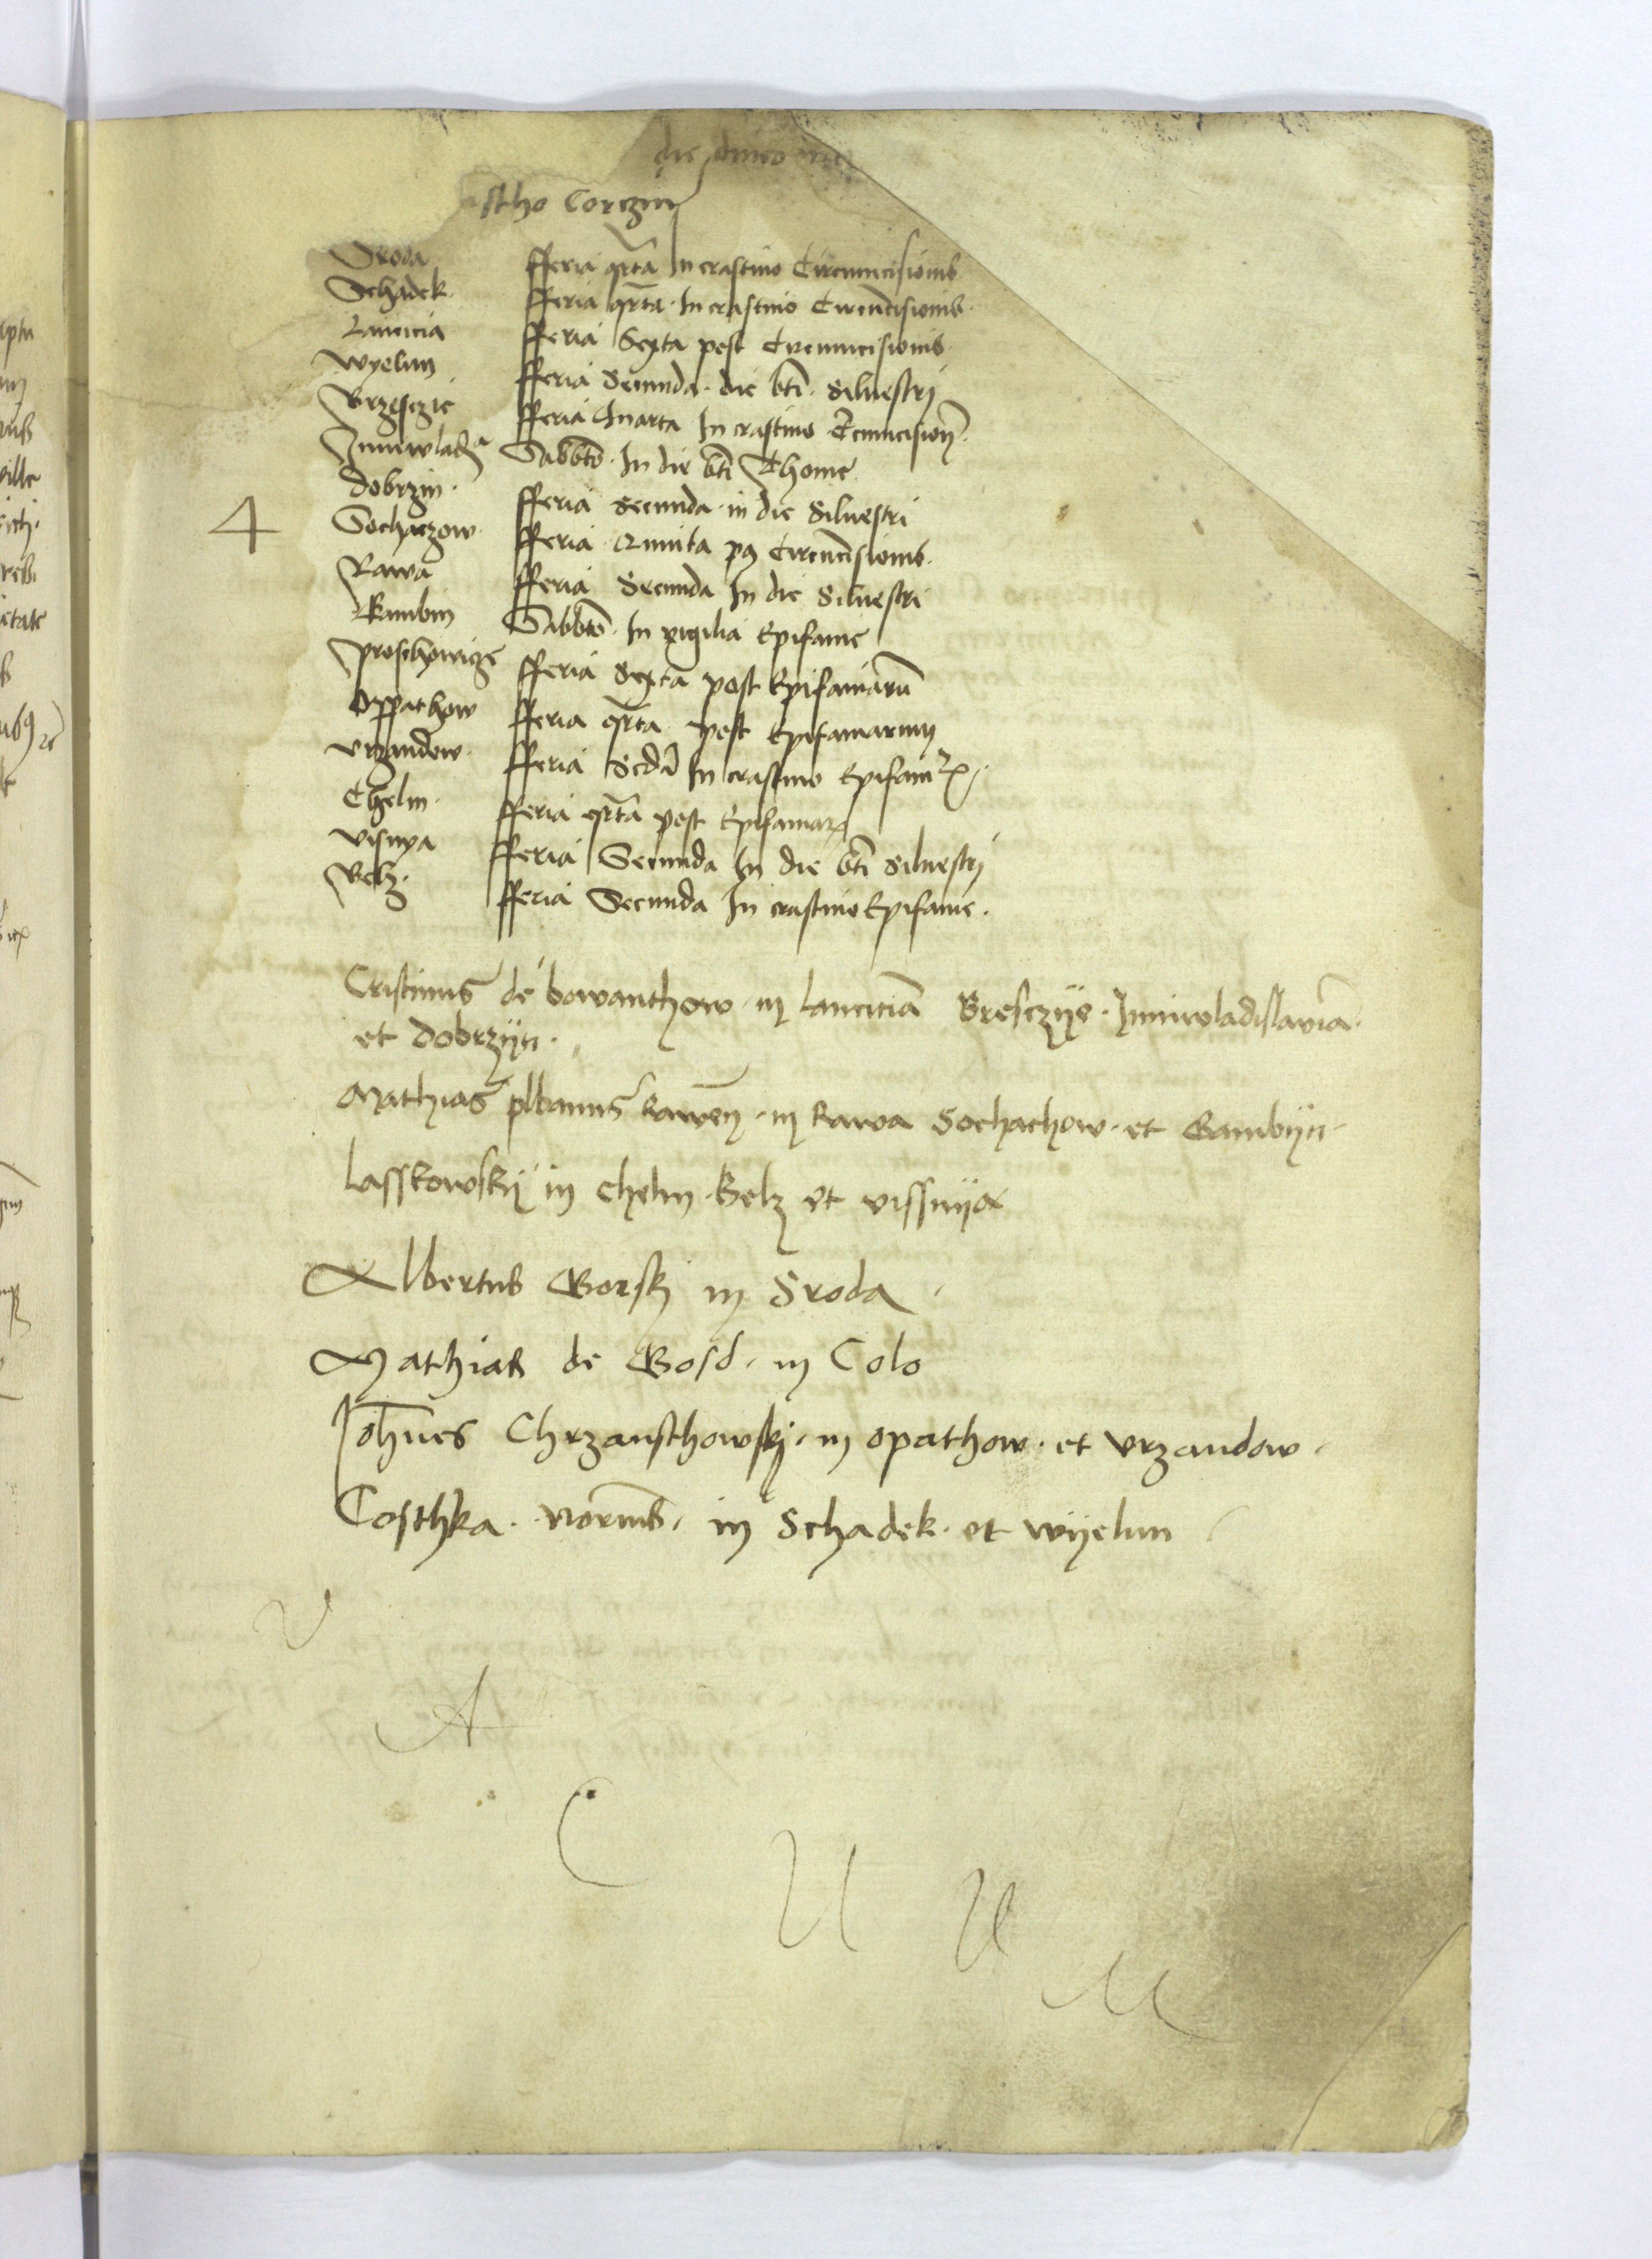 die dnico
astho Corczin
Sroda fferia qrta In crastino Circumcisionis
Schadek fferia qrta In crastino Circucisionis
Lancicia fferia Sexta post Circumcisionis
Wyelun fferia Secunda die bti Siluestrj
Brzesczie fferia Quarta In crastino Circumcision
Juniwladisla Sabbto In die bti Thome
Dobrzin fferia secunda in die Siluestri
4 Sochaczow fferia Quinta p9 Circucisionis
Rawa fferia Secunda In die Siluestri
Bambin Sabbto In vigilia Epifanie
Proschowicze fferia Sexta post Epifaniaru
Oppathow fferia qrta post Epifaniarum
Vrzandow fferia Scda In crastino Epifaniar
Chelm fferia qrta post Epifaniar
Visnya fferia Secunda In die bti Siluestrj
Belz fferia Secunda In crastino Epifanie
Cristinus de bowanthow in lanciciam Bresczije Juniwladislauiam
et Dobrzijn
Mathias plbanus Rawen in Rawa Sochachow et Gambijn
Lasskowskij in Chelm Belz et vissnija
Albertus Gorskj in Sroda
Mathias de Gosd in Colo
Johnes Chrzansthowskj in opathow et vrzandow
Costhka Norims in Schadek et wijelun
V
A
C
U
U
M